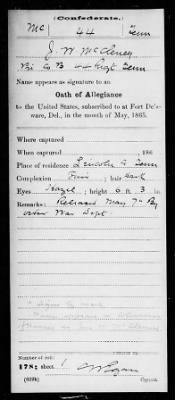 (Confederate.)
Mc 44 Tenn
J. W. McCleney
Pri Co B 44 Regt Tenn
Name appears as signature to an
Oath of Allegiance
to the United States, subscribed to at Fort Dela-
ware, Del., in the month of May, 1865.
Where captured
When captured , 186 .
Place of residence Lincoln Co Tenn
Complexion Fair ; hair dark
Eyes Hazel ; height 6 ft. 3 in.
Remarks: Released May 7" By
order War Dept.
Number of roll:
178; sheet 1
(639b) Copyist.